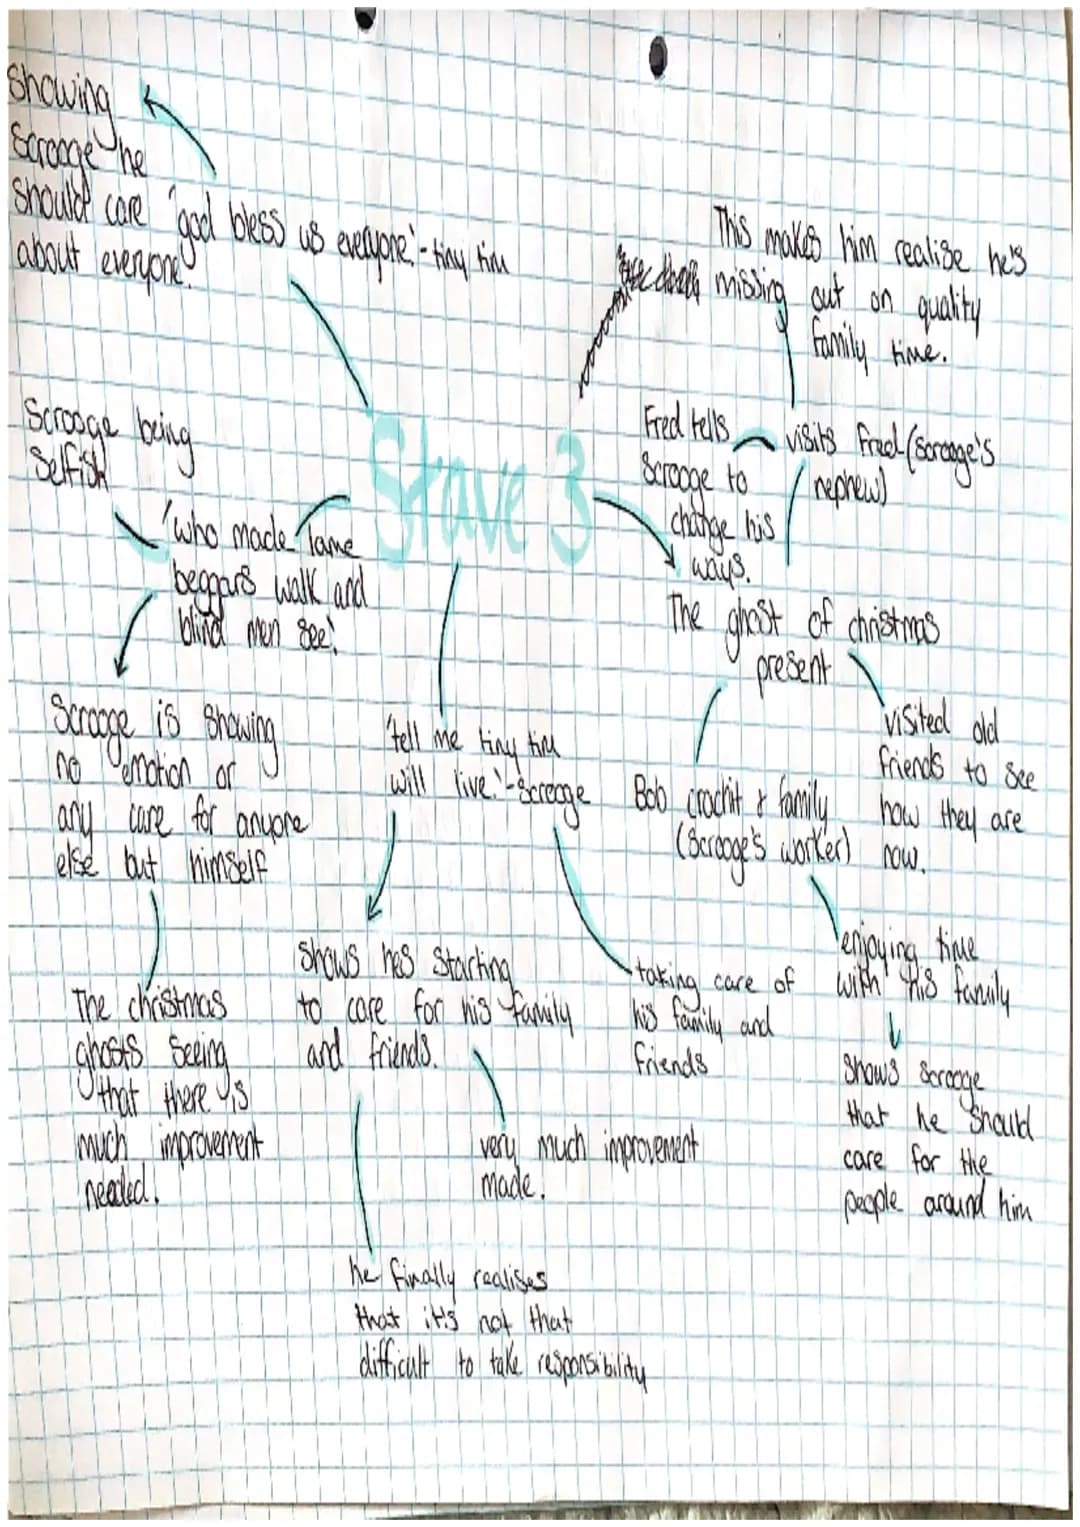 Showing
Scrooge he
should care
about everyone.
'god bless us everyone.' - tiny tim
This makes him realise he's
missing out on quality
family time.
Scrooge being
Selfish
Stave 3
Fred tells
Scrooge to
change his
ways.
visits Fred (Scrooge's
nephew)
'who made lame
beggars walk and
blind men see'.
The ghost of christmas
present
Scrooge is showing
no emotion or
any care for anyone
else but himself
'tell me tiny tim
will live.' - Scrooge
Bob crachit & family
(Scrooge's worker)
visited old
friends to see
how they are
now.
The christmas
ghosts seeing
that there is
much improvement
needed.
shows hes starting
to care for his family
and friends.
taking care of
his family and
friends
enjoying time
with his family
shows scrooge
that he should
care for the
people around him
very much improvement
made.
he finally realises
that it's not that
difficult to take responsibility